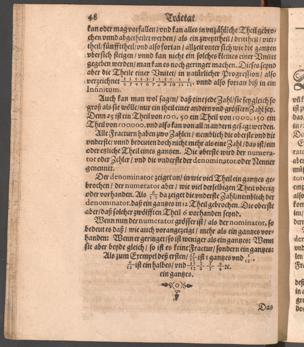 48 Tractat
kan oder mag vorfallen / und kan alles in unzählige Theil gebro-
chen unnd abgetheilet werden / als ein zweytheil / dritheil / vier-
theil / fünfftheil / und also fortan / allzeit unter sich wie die gantzen
ubersich steigen / unnd kan nicht ein solches kleines einer Unitet
gegeben werden / man kan es noch geringer machen. Diese seynd
aber die Theile einer Unitet in natürlicher Progression / also
verzeichnet unnd also fortan biß in
Infinitum.
Auch kan man wol sagen / daß ein jede Zahl / sie sey gleich so
groß als sie wölle / nur ein theil einer andern und grössern Zahl sey.
Denn 25 ist ein Theil von 100, 50 ein Theil von 1000, 150 ein
Theil von 100000, und also kan von all'n andern gesagt werden.
Alle Fracturn haben zwo Zahlen / nemblich die oberste und die
underste / unnd bedeuten doch nicht mehr als eine Zahl / das ist / ein
oder etzliche Theil eines gantzen. Die oberste wird der numera-
tor oder Zehler / und die underste der denominator oder Nenner
genennet.
Der denominator zeiget an / in wie viel Theil ein gantzes ge-
brochen / der numerator aber / wie viel derselbigen Theil ubrig
oder vorhanden. Als da zeiget die underste Zahl nemblich der
denominator, daß ein gantzes in 12 Theil gebrochen. Die oberste
aber / daß solcher zwölfften Theil 6 vorhanden seynd.
Wenn nun der numerator grösser ist / als der nominator, so
bedeut es daß / wie auch voran gezeigt / mehr als ein gantzes vor-
handen: Wenn er geringer / so ist weniger als ein gantzes: Wenn
sie aber beyde gleich / so ist es keine Fractur / sondern ein gantzes:
Als zum Exempel deß ersten / ist 1 gantzes und
ist ein halbes / und ꝛc.
ein gantzes.
Das